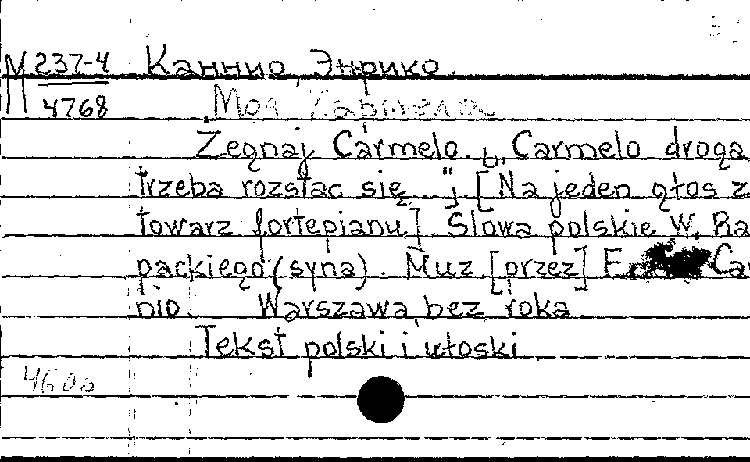 М 237-4 Каннио, Энрико.
4768 Моя Кармела
Żegnaj Carmelo. „Carmelo droga
trzeba rozstac się..."; [Na jeden głos z
towarz fortepianu]. Slowa polskie W. Ra
packiego (syna). Muz. [przez] E. Can
nio. Warszawa, bez roka
Tekst polski i włoski
4600